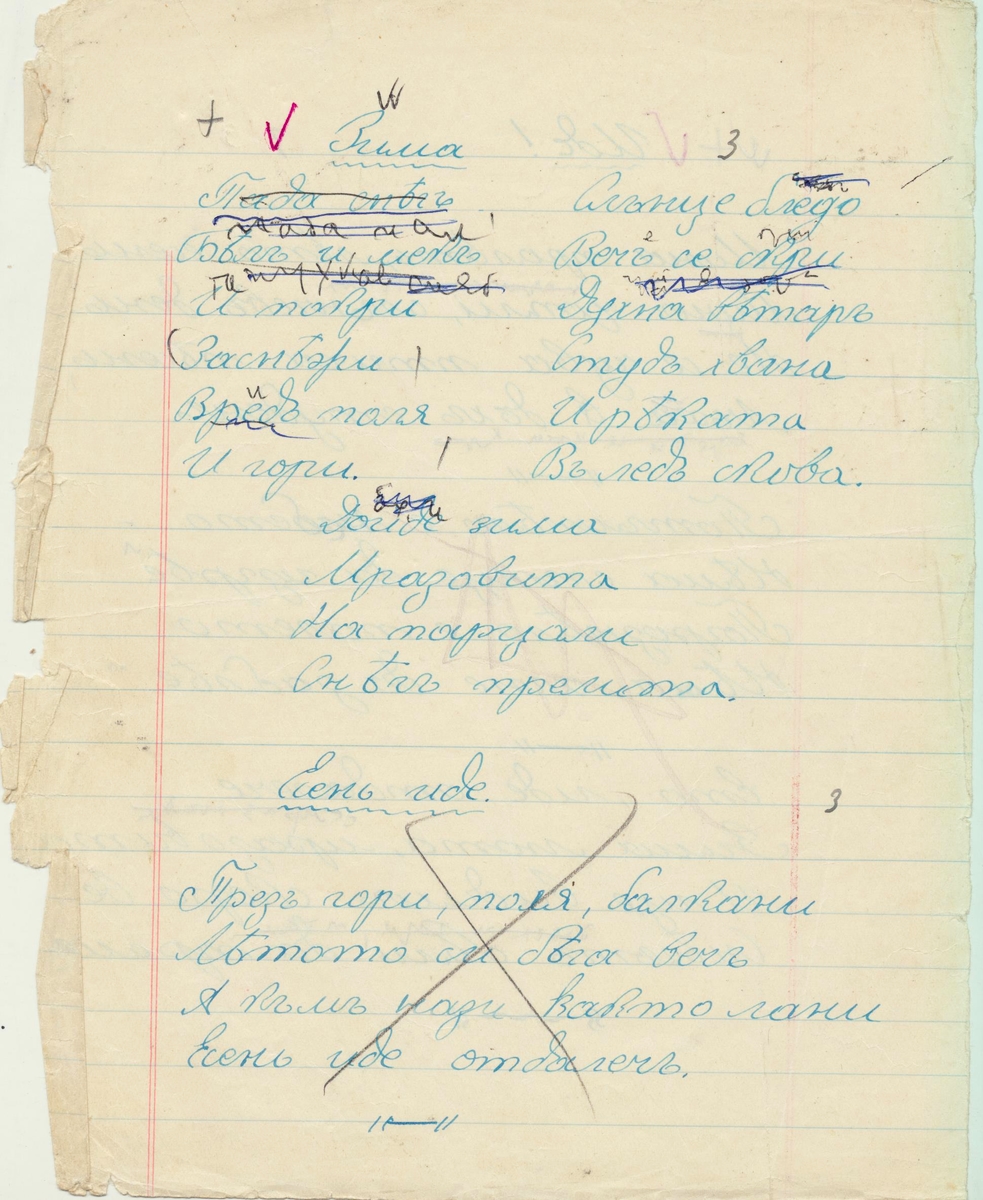 Зима
3
Пада снѣгъ
Бѣлъ и мекъ
И покри
Заснѣжи
Вредъ поля
И гори.
Слънце бледо
Вечъ се скри
Духна вѣтаръ
Студъ хвана
И рѣката
Въ ледъ скова.
Дойде зима
Мразовита
На парцали
Снѣгъ премита.
Есень иде.
3
Презъ гори, поля, балкани
Лѣтото си бѣга вечъ
А къмъ нази както лани
Есень иде отдалечъ.